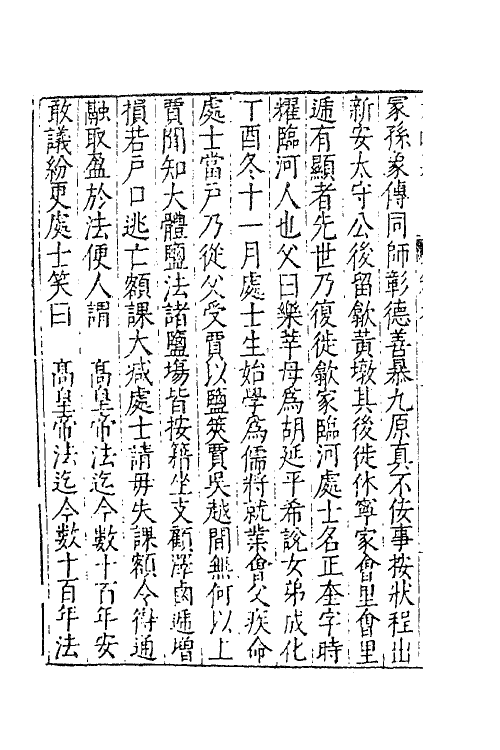 冢孫象傳同師彰德善暴九原真不佞事按狀程出
新安太守公後留歙黃墩其後徙休寧家會里會里
遞有顯者先世乃復徙歙家臨河處士名正奎字時
耀臨河人也父曰樂莘母爲胡延平希說女弟成化
丁酉冬十一月處士生始學爲儒將就業會父疾命
處士當戶乃從父受賈以鹽筴賈吳越間無何以上
賈聞知大體鹽法諸鹽場皆按籍坐支顧澤鹵遞增
損若戶口逃亡額課大减處士請毋失課額令得通
融取盈於法便人謂　髙皇帝法迄今數十百年安
敢議紛更處士笑曰　髙皇帝法迄今數十百年法